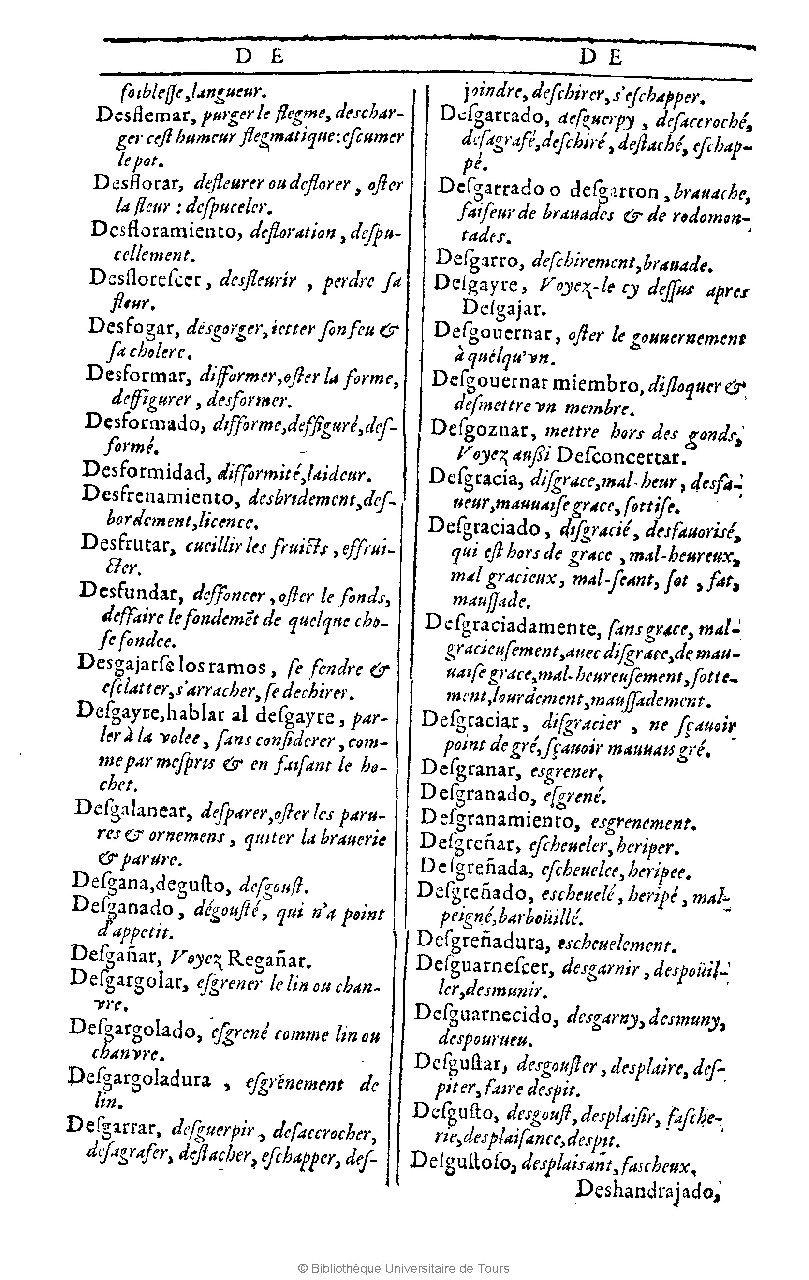 D E
foiblesse, langueur.
Desflemar, purger le flegme, deschar-
ger cest humeur flegmatique: escumer
le pot.
Desflorar, defleurer ou deflorer, oster
la fleur : despuceler.
Desfloramiento, defloration, despu-
cellement.
Desflorescer, desfleurir, perdre sa
fleur.
Desfogar, desgorger, ietter son feu &
sa cholere.
Desformar, difformer, oster la forme,
deffigurer, desformer.
Desformado, difforme, deffiguré, des-
formé.
Desformidad, difformité, laideur.
Desfrenamiento, desbridement, des-
bordement, licence.
Desfrutar, cueillir les fruicts, effrui-
cter.
Desfundar, deffoncer, oster le fonds,
deffaire le fondemēt de quelque cho-
se fondee.
Desgajarse los ramos, se fendre &
esclatter, s'arracher, se dechirer.
Desgayre, hablar al desgayre, par-
ler à la volee, sans considerer, com-
me par mespris & en faisant le ho-
chet.
Desgalanear, desparer, oster les paru-
res & ornemens, quiter la brauerie
& parure.
Desgana, degusto, desgoust.
Desganado, dégousté, qui n'a point
d'appetit.
Desgañar, Voyez Regañar.
Desgargolar, esgrener le lin ou chan-
vre.
Desgargolado, esgrené comme lin ou
chanvre.
Desgargoladura, esgrénement de
lin.
Desgarrar, desguerpir, desaccrocher,
desagrafer, destacher, eschapper, des-
D E
joindre, deschirer, s'eschapper.
Desgarrado, desguerpy, desaccroché,
desagrafé, deschiré, destaché, eschap-
pé.
Desgarrado o desgarron, brauache,
faiseur de brauades & de rodomon-
tades.
Desgarro, deschirement, brauade.
Desgayre, Voyez-le cy dessus apres
Desgajar.
Desgouernar, oster le gouuernement
à quelqu'vn.
Desgouernar miembro, disloquer &
desmettre vn membre.
Desgoznar, mettre hors des gonds,
Voyez aussi Desconcertar.
Desgracia, disgrace, mal-heur, desfa-
ueur, mauuaise grace, sottise.
Desgraciado, disgracié, desfauorisé,
qui est hors de grace, mal-heureux,
mal gracieux, mal-seant, sot, fat,
maussade.
Desgraciadamente, sans grace, mal-
gracieusement, auec disgrace, de mau-
uaise grace, mal-heureusement, sotte-
ment, lourdement, maussadement.
Desgraciar, disgracier, ne sçauoir
point de gré, sçauoir mauuais gré.
Desgranar, esgrener,
Desgranado, esgrené.
Desgranamiento, esgrenement.
Desgreñar, escheueler, heriper.
Desgreñada, escheuelee, heripee.
Desgreñado, escheuelé, heripé, mal-
peigné, barboüillé.
Desgreñadura, escheuelement.
Desguarnescer, desgarnir, despoüil-
ler, desmunir.
Desguarnecido, desgarny, desmuny,
despourueu.
Desgustar, desgouster, desplaire, des-
piter, faire despit.
Desgusto, desgoust, desplaisir, fasche-
rie, desplaisance, despit.
Desgustoso, desplaisant, fascheux,
Deshandrajado,
© Bibliothèque Universitaire de Tours